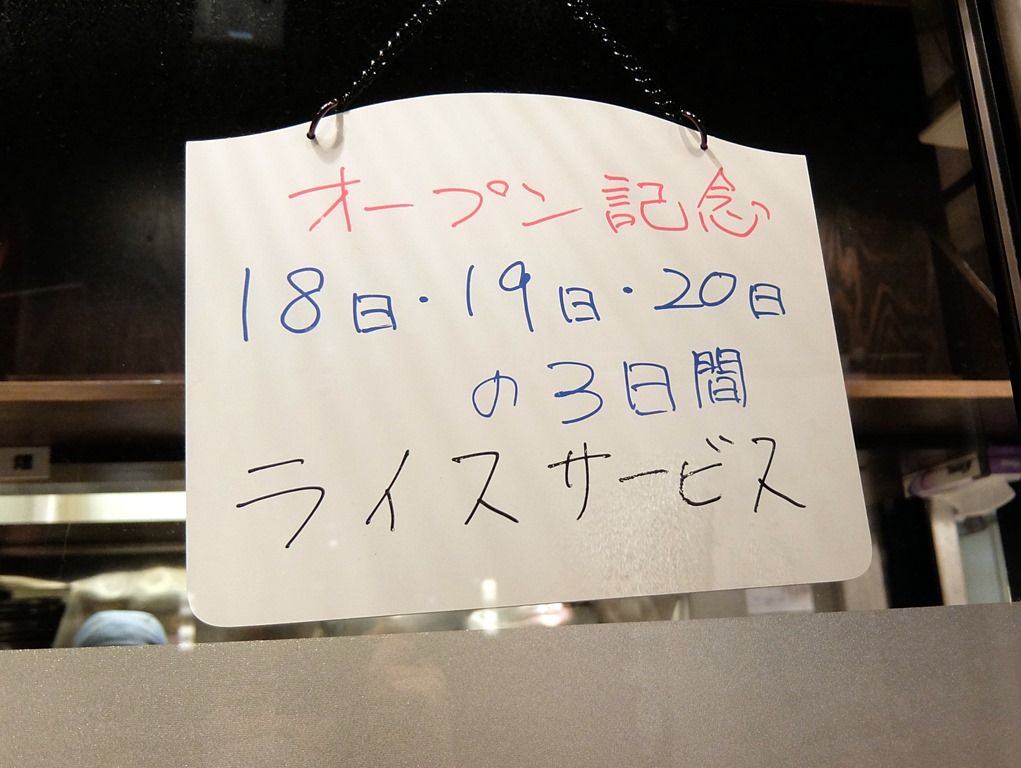 オープン記念
18日・19日・20日
の3日間
ライスサービス